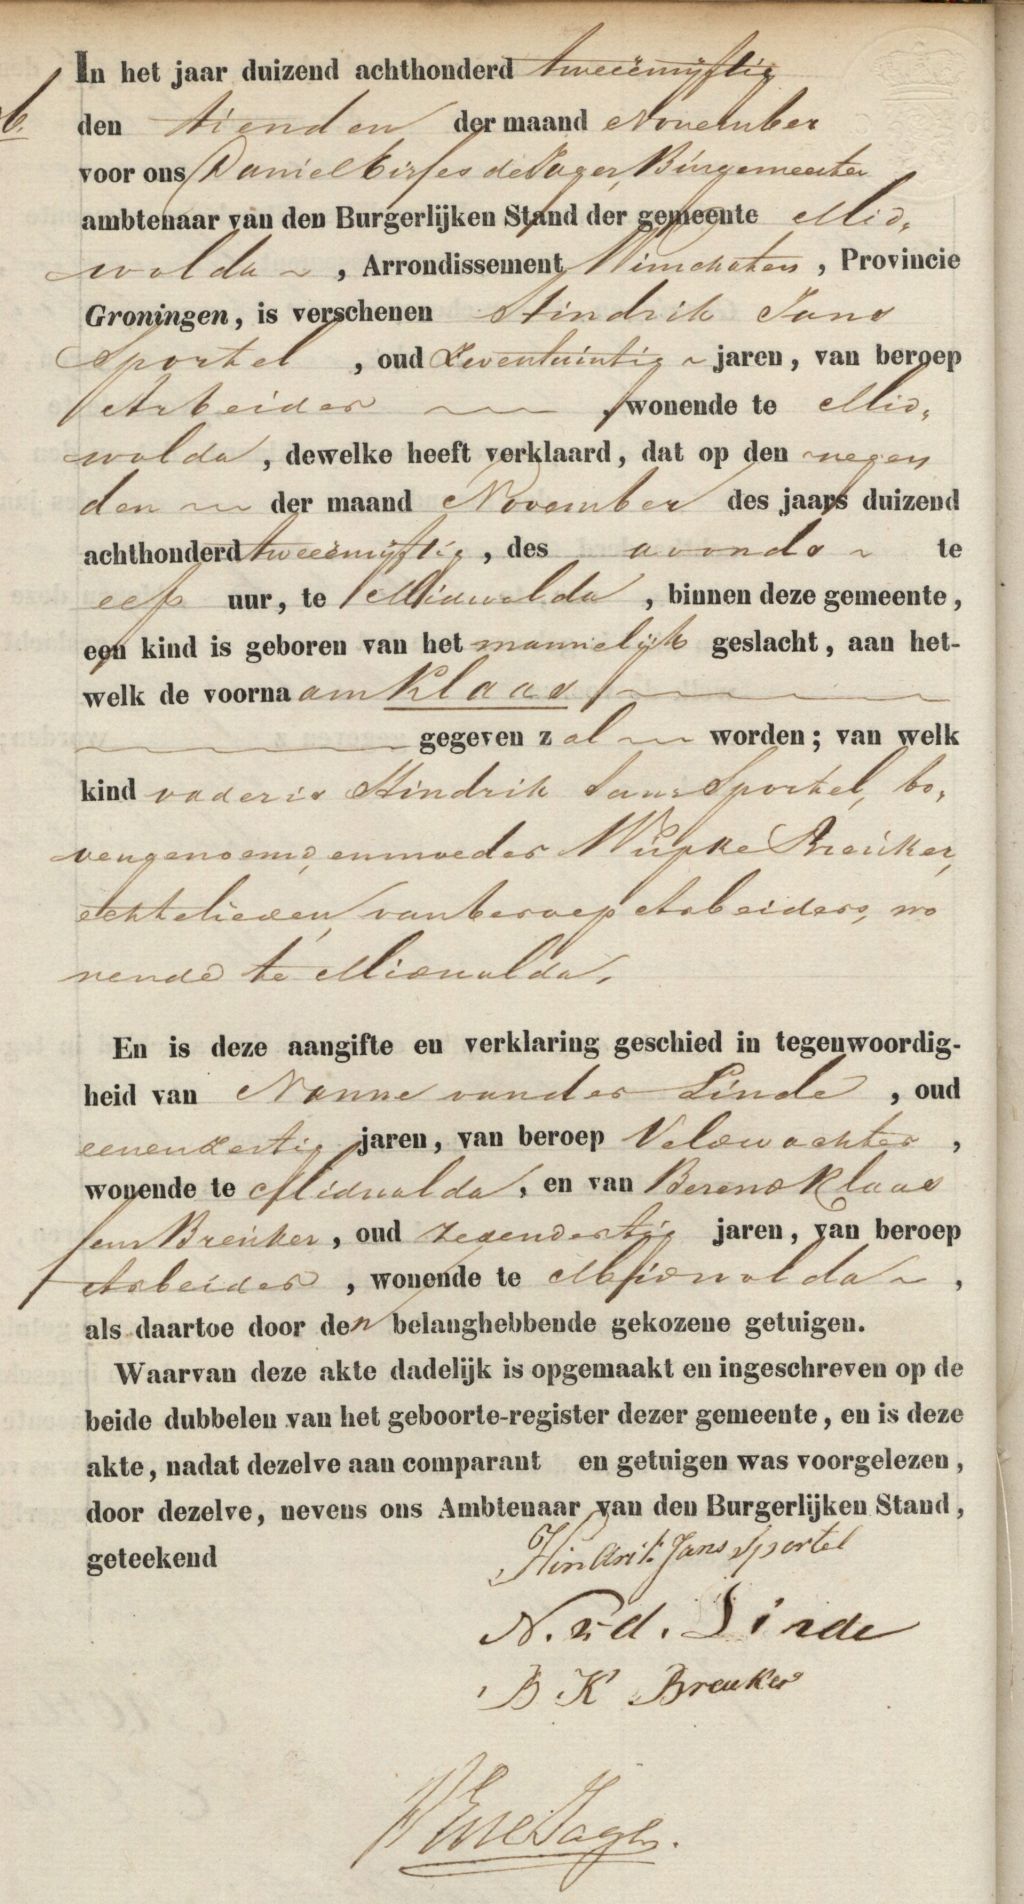 In het jaar duizend achthonderd tweeënvijftig
den tienden der maand November
voor ons Daniel Eisses de Jager, Burgemeester
ambtenaar van den Burgerlijken Stand der gemeente Mid,
wolda , Arrondissement Winschoten , Provincie
Groningen, is verschenen Hindrik Jans
Sportel , oud zevenentwintig jaren, van beroep
Arbeider , wonende te Mid,
wolda , dewelke heeft verklaard, dat op den negen
den der maand November des jaars duizend
achthonderd tweeënvijftig , des avonds te
elf uur, te Midwolda , binnen deze gemeente,
een kind is geboren van het mannelijk geslacht, aan het-
welk de voornaam Klaas
gegeven zal worden; van welk
kind vader is Hindrik Jans Sportel, bo,
vengenoemd, en moeder Wupke Breuker,
echtelieden, van beroep Arbeiders, wo
nende te Midwolda.
En is deze aangifte en verklaring geschied in tegenwoordig-
heid van Nanne van der Linde , oud
eenendertig jaren, van beroep Veldwachter ,
wonende te Midwolda , en van Berend Klaas
sens Breuker , oud jaren, van beroep
Arbeider , wonende te Midwolda ,
als daartoe door den belanghebbende gekozene getuigen.
Waarvan deze akte dadelijk is opgemaakt en ingeschreven op de
beide dubbelen van het geboorte-register dezer gemeente, en is deze
akte, nadat dezelve aan comparant en getuigen was voorgelezen,
door dezelve, nevens ons Ambtenaar van den Burgerlijken Stand,
geteekend Hindrik Jans Sportel
N. v. d. Linde
B K Breuker
DE de Jager.